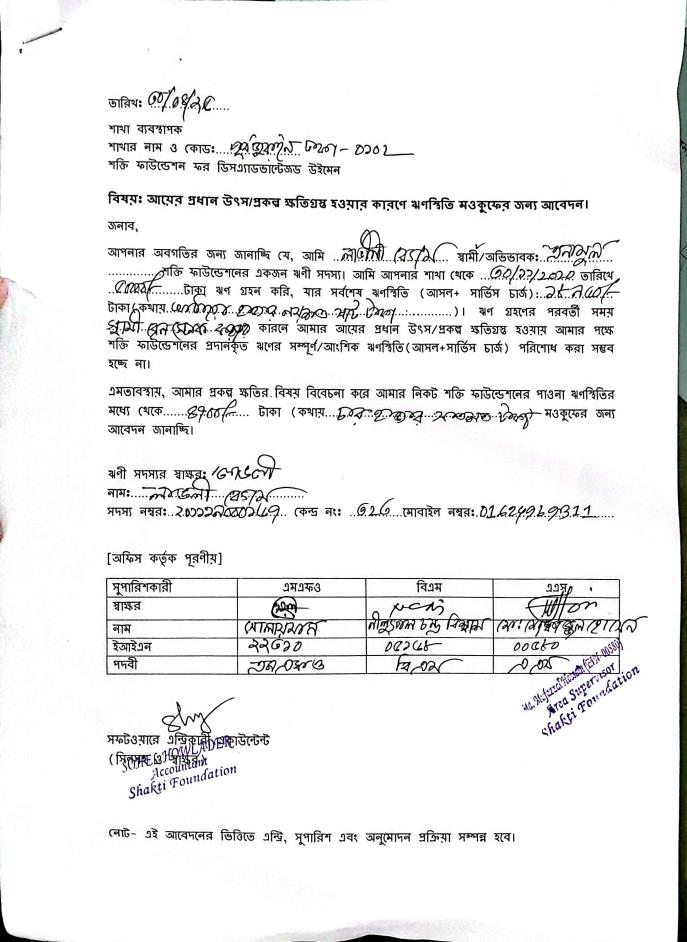 তারিখ: ৩০/০৪/২৫
শাখা ব্যবস্থাপক
শাখার নাম ও কোড: ঢাকা - ০১০১
শক্তি ফাউন্ডেশন ফর ডিসএ্যাডভান্টেজড উইমেন
বিষয়ঃ আয়ের প্রধান উৎস/প্রকল্প ক্ষতিগ্রস্ত হওয়ার কারণে ঋণস্থিতি মওকুফের জন্য আবেদন।
জনাব,
আপনার অবগতির জন্য জানাচ্ছি যে, আমি লাভলী বেগম স্বামী/অভিভাবক: এনামুল
শক্তি ফাউন্ডেশনের একজন ঋণী সদস্য। আমি আপনার শাখা থেকে তারিখে
টাকা ঋণ গ্রহন করি, যার সর্বশেষ ঋণস্থিতি (আসল+ সার্ভিস চার্জ):
টাকা(কথায় হাজার টাকা)। ঋণ গ্রহণের পরবর্তী সময়
স্বামী কারনে আমার আয়ের প্রধান উৎস/প্রকল্প ক্ষতিগ্রস্ত হওয়ায় আমার পক্ষে
শক্তি ফাউন্ডেশনের প্রদানকৃত ঋণের সম্পূর্ণ/আংশিক ঋণস্থিতি(আসল+সার্ভিস চার্জ) পরিশোধ করা সম্ভব
হচ্ছে না।
এমতাবস্থায়, আমার প্রকল্প ক্ষতির বিষয় বিবেচনা করে আমার নিকট শক্তি ফাউন্ডেশনের পাওনা ঋণস্থিতির
মধ্যে থেকে ৪৭০০/= টাকা (কথায় চার হাজার সাতশত টাকা) মওকুফের জন্য
আবেদন জানাচ্ছি।
ঋণী সদস্যর স্বাক্ষর: লাভলী
নাম: লাভলী বেগম
সদস্য নম্বর: কেন্দ্র নং: ৩২৬ মোবাইল নম্বর:
[অফিস কর্তৃক পূরণীয়]
সুপারিশকারী এমএফও বিএম এএস
স্বাক্ষর
নাম সোলায়মান চন্দ্র বিশ্বাস হোসেন
ইআইএন ২২৩১০ ০৫২৪৮ ০০৫৮০
পদবী এম এফ ও বি এম এ এস
Area Supervisor
Shakti Foundation
সফটওয়ারে এন্ট্রিকারী একাউন্টেন্ট
HOWLADER
Accountant
Shakti Foundation
নোট- এই আবেদনের ভিত্তিতে এন্ট্রি, সুপারিশ এবং অনুমোদন প্রক্রিয়া সম্পন্ন হবে।